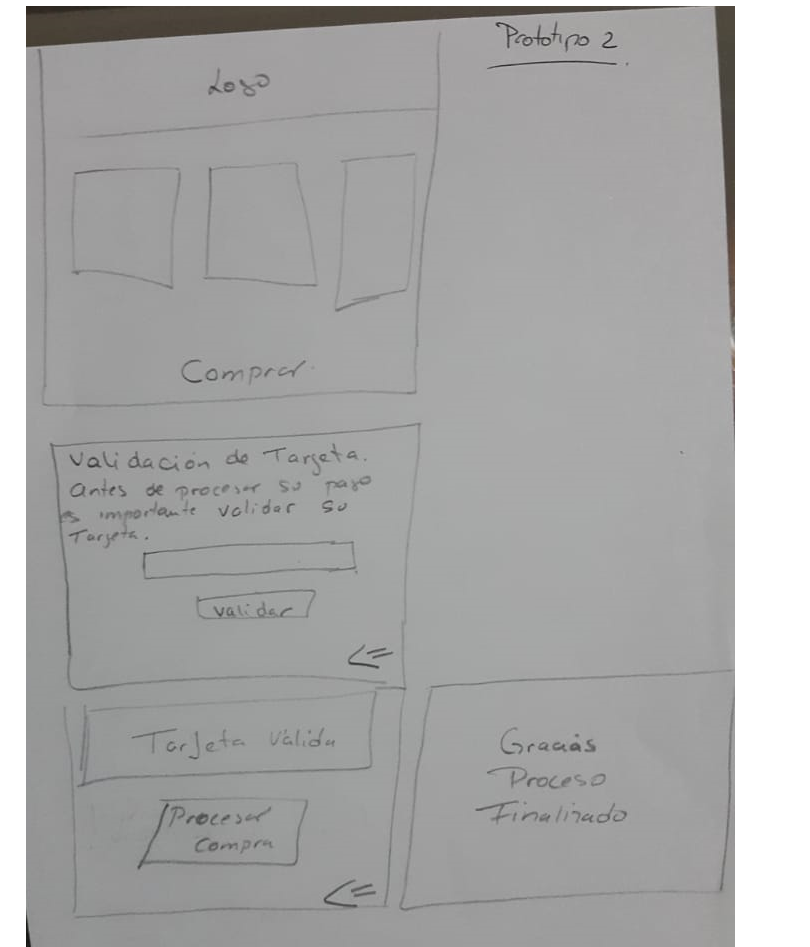 Prototipo 2
Logo
Comprar.
Validación de Targeta.
Antes de procesar su pago
es importante validar su
Targeta.
Validar
<=
Tarjeta Válida
Procesar
Compra
<=
Gracias
Proceso
Finalizado